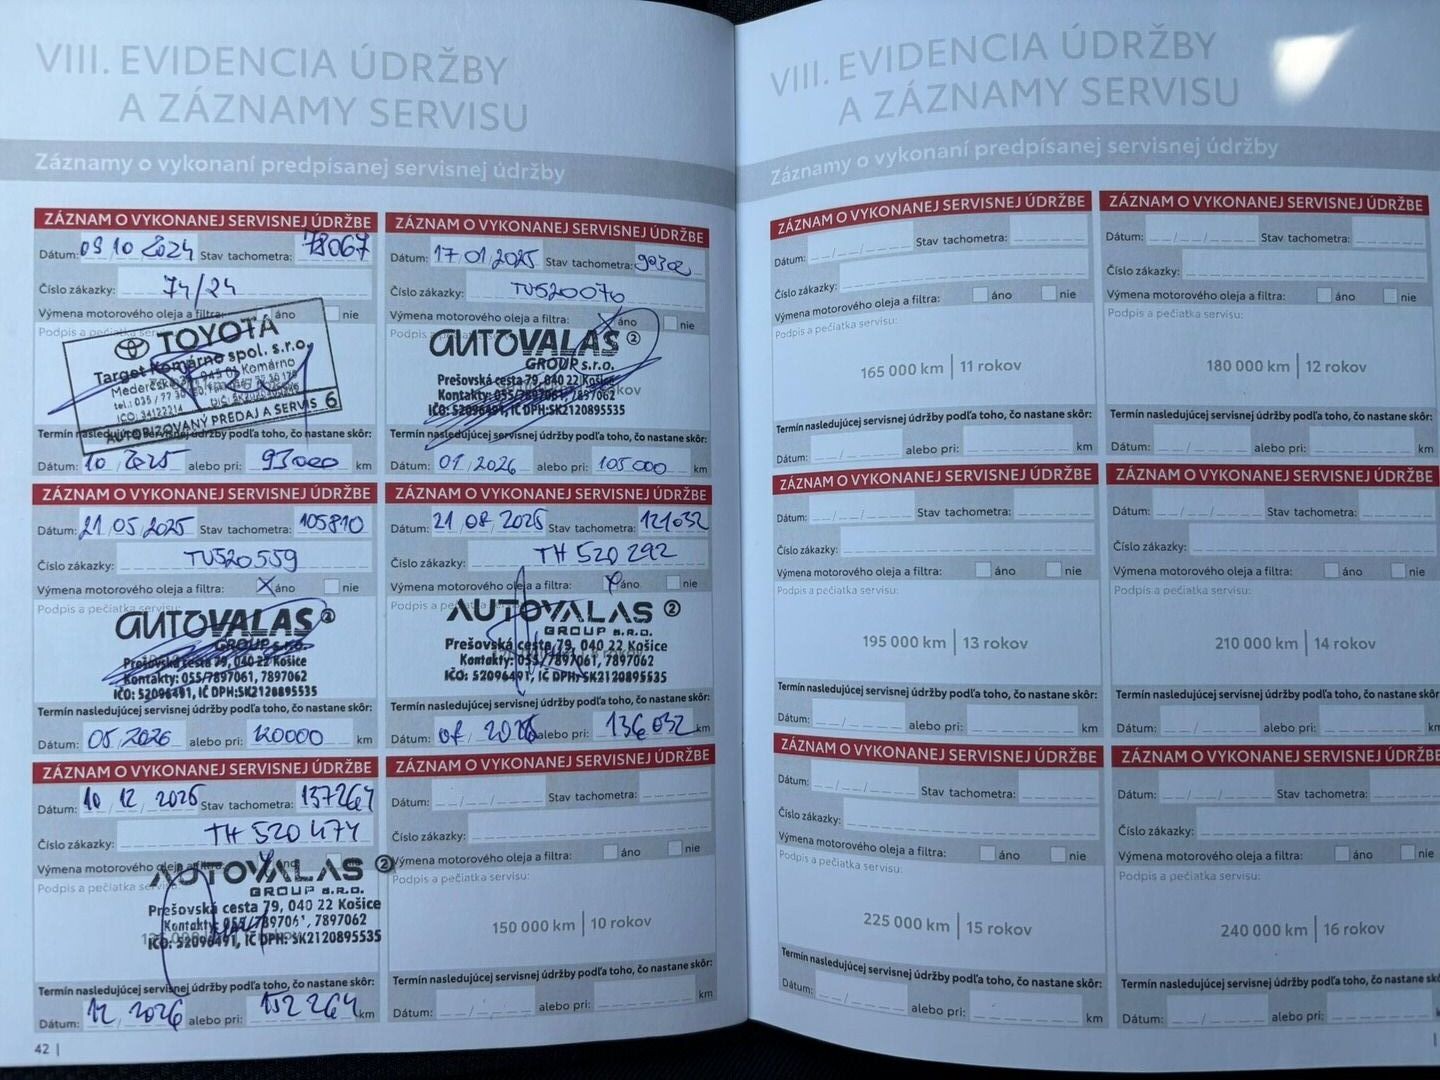 VIII. EVIDENCIA ÚDRŽBY
A ZÁZNAMY SERVISU
Záznamy o vykonaní predpísanej servisnej údržby
ZÁZNAM O VYKONANEJ SERVISNEJ ÚDRŽBE
Dátum: 09 10 2024 Stav tachometra: 78067
Číslo zákazky: 74/24
Výmena motorového oleja a filtra: áno nie
Podpis a pečiatka
TOYOTA
Target Komárno spol. s.r.o.
945 01 Komárno
IČO: 34122214
AUTORIZOVANÝ PREDAJ A SERVIS 6
Termín nasledujúcej servisnej údržby podľa toho, čo nastane skôr:
Dátum: 10 / 2025 alebo pri: 93000 km
ZÁZNAM O VYKONANEJ SERVISNEJ ÚDRŽBE
Dátum: 17 01 2025 Stav tachometra: 90302
Číslo zákazky: TU520070
Výmena motorového oleja a filtra: X áno nie
Podpis a pečiatka
AUTOVALAS 2
GROUP s.r.o.
Prešovská cesta 79, 040 22 Košice
Kontakty: 055/7897061, 7897062
IČO: 52096491, IČ DPH:SK2120895535
Termín nasledujúcej servisnej údržby podľa toho, čo nastane skôr:
Dátum: 01 / 2026 alebo pri: 105000 km
ZÁZNAM O VYKONANEJ SERVISNEJ ÚDRŽBE
Dátum: 21 05 2025 Stav tachometra: 105810
Číslo zákazky: TU520559
Výmena motorového oleja a filtra: X áno nie
Podpis a pečiatka servisu:
AUTOVALAS 2
GROUP s.r.o.
Prešovská cesta 79, 040 22 Košice
Kontakty: 055/7897061, 7897062
IČO: 52096491, IČ DPH:SK2120895535
Termín nasledujúcej servisnej údržby podľa toho, čo nastane skôr:
Dátum: 05 / 2026 alebo pri: 120000 km
ZÁZNAM O VYKONANEJ SERVISNEJ ÚDRŽBE
Dátum: 21 08 2025 Stav tachometra: 121032
Číslo zákazky: TH 520 292
Výmena motorového oleja a filtra: X áno nie
Podpis a pečiatka servisu:
AUTOVALAS 2
GROUP s.r.o.
Prešovská cesta 79, 040 22 Košice
Kontakty: 055/7897061, 7897062
IČO: 52096491, IČ DPH:SK2120895535
Termín nasledujúcej servisnej údržby podľa toho, čo nastane skôr:
Dátum: 08 2026 alebo pri: 136 032 km
ZÁZNAM O VYKONANEJ SERVISNEJ ÚDRŽBE
Dátum: 10 12 2025 Stav tachometra: 137264
Číslo zákazky: TH 520 474
Výmena motorového oleja a filtra: áno nie
Podpis a pečiatka
AUTOVALAS 2
GROUP s.r.o.
Prešovská cesta 79, 040 22 Košice
Kontakty: 055/7897061, 7897062
IČO: 52096491, IČ DPH:SK2120895535
Termín nasledujúcej servisnej údržby podľa toho, čo nastane skôr:
Dátum: 12 / 2026 alebo pri: 152 264 km
ZÁZNAM O VYKONANEJ SERVISNEJ ÚDRŽBE
Dátum: Stav tachometra:
Číslo zákazky:
Výmena motorového oleja a filtra: áno nie
Podpis a pečiatka servisu:
150 000 km | 10 rokov
Termín nasledujúcej servisnej údržby podľa toho, čo nastane skôr:
Dátum: alebo pri: km
42 |
VIII. EVIDENCIA ÚDRŽBY
A ZÁZNAMY SERVISU
Záznamy o vykonaní predpísanej servisnej údržby
ZÁZNAM O VYKONANEJ SERVISNEJ ÚDRŽBE
Dátum: Stav tachometra:
Číslo zákazky:
Výmena motorového oleja a filtra: áno nie
Podpis a pečiatka servisu:
165 000 km | 11 rokov
Termín nasledujúcej servisnej údržby podľa toho, čo nastane skôr:
Dátum: alebo pri: km
ZÁZNAM O VYKONANEJ SERVISNEJ ÚDRŽBE
Dátum: Stav tachometra:
Číslo zákazky:
Výmena motorového oleja a filtra: áno nie
Podpis a pečiatka servisu:
180 000 km | 12 rokov
Termín nasledujúcej servisnej údržby podľa toho, čo nastane skôr:
Dátum: alebo pri: km
ZÁZNAM O VYKONANEJ SERVISNEJ ÚDRŽBE
Dátum: Stav tachometra:
Číslo zákazky:
Výmena motorového oleja a filtra: áno nie
Podpis a pečiatka servisu:
195 000 km | 13 rokov
Termín nasledujúcej servisnej údržby podľa toho, čo nastane skôr:
Dátum: alebo pri: km
ZÁZNAM O VYKONANEJ SERVISNEJ ÚDRŽBE
Dátum: Stav tachometra:
Číslo zákazky:
Výmena motorového oleja a filtra: áno nie
Podpis a pečiatka servisu:
210 000 km | 14 rokov
Termín nasledujúcej servisnej údržby podľa toho, čo nastane skôr:
Dátum: alebo pri: km
ZÁZNAM O VYKONANEJ SERVISNEJ ÚDRŽBE
Dátum: Stav tachometra:
Číslo zákazky:
Výmena motorového oleja a filtra: áno nie
Podpis a pečiatka servisu:
225 000 km | 15 rokov
Termín nasledujúcej servisnej údržby podľa toho, čo nastane skôr:
Dátum: alebo pri: km
ZÁZNAM O VYKONANEJ SERVISNEJ ÚDRŽBE
Dátum: Stav tachometra:
Číslo zákazky:
Výmena motorového oleja a filtra: áno nie
Podpis a pečiatka servisu:
240 000 km | 16 rokov
Termín nasledujúcej servisnej údržby podľa toho, čo nastane skôr:
Dátum: alebo pri: